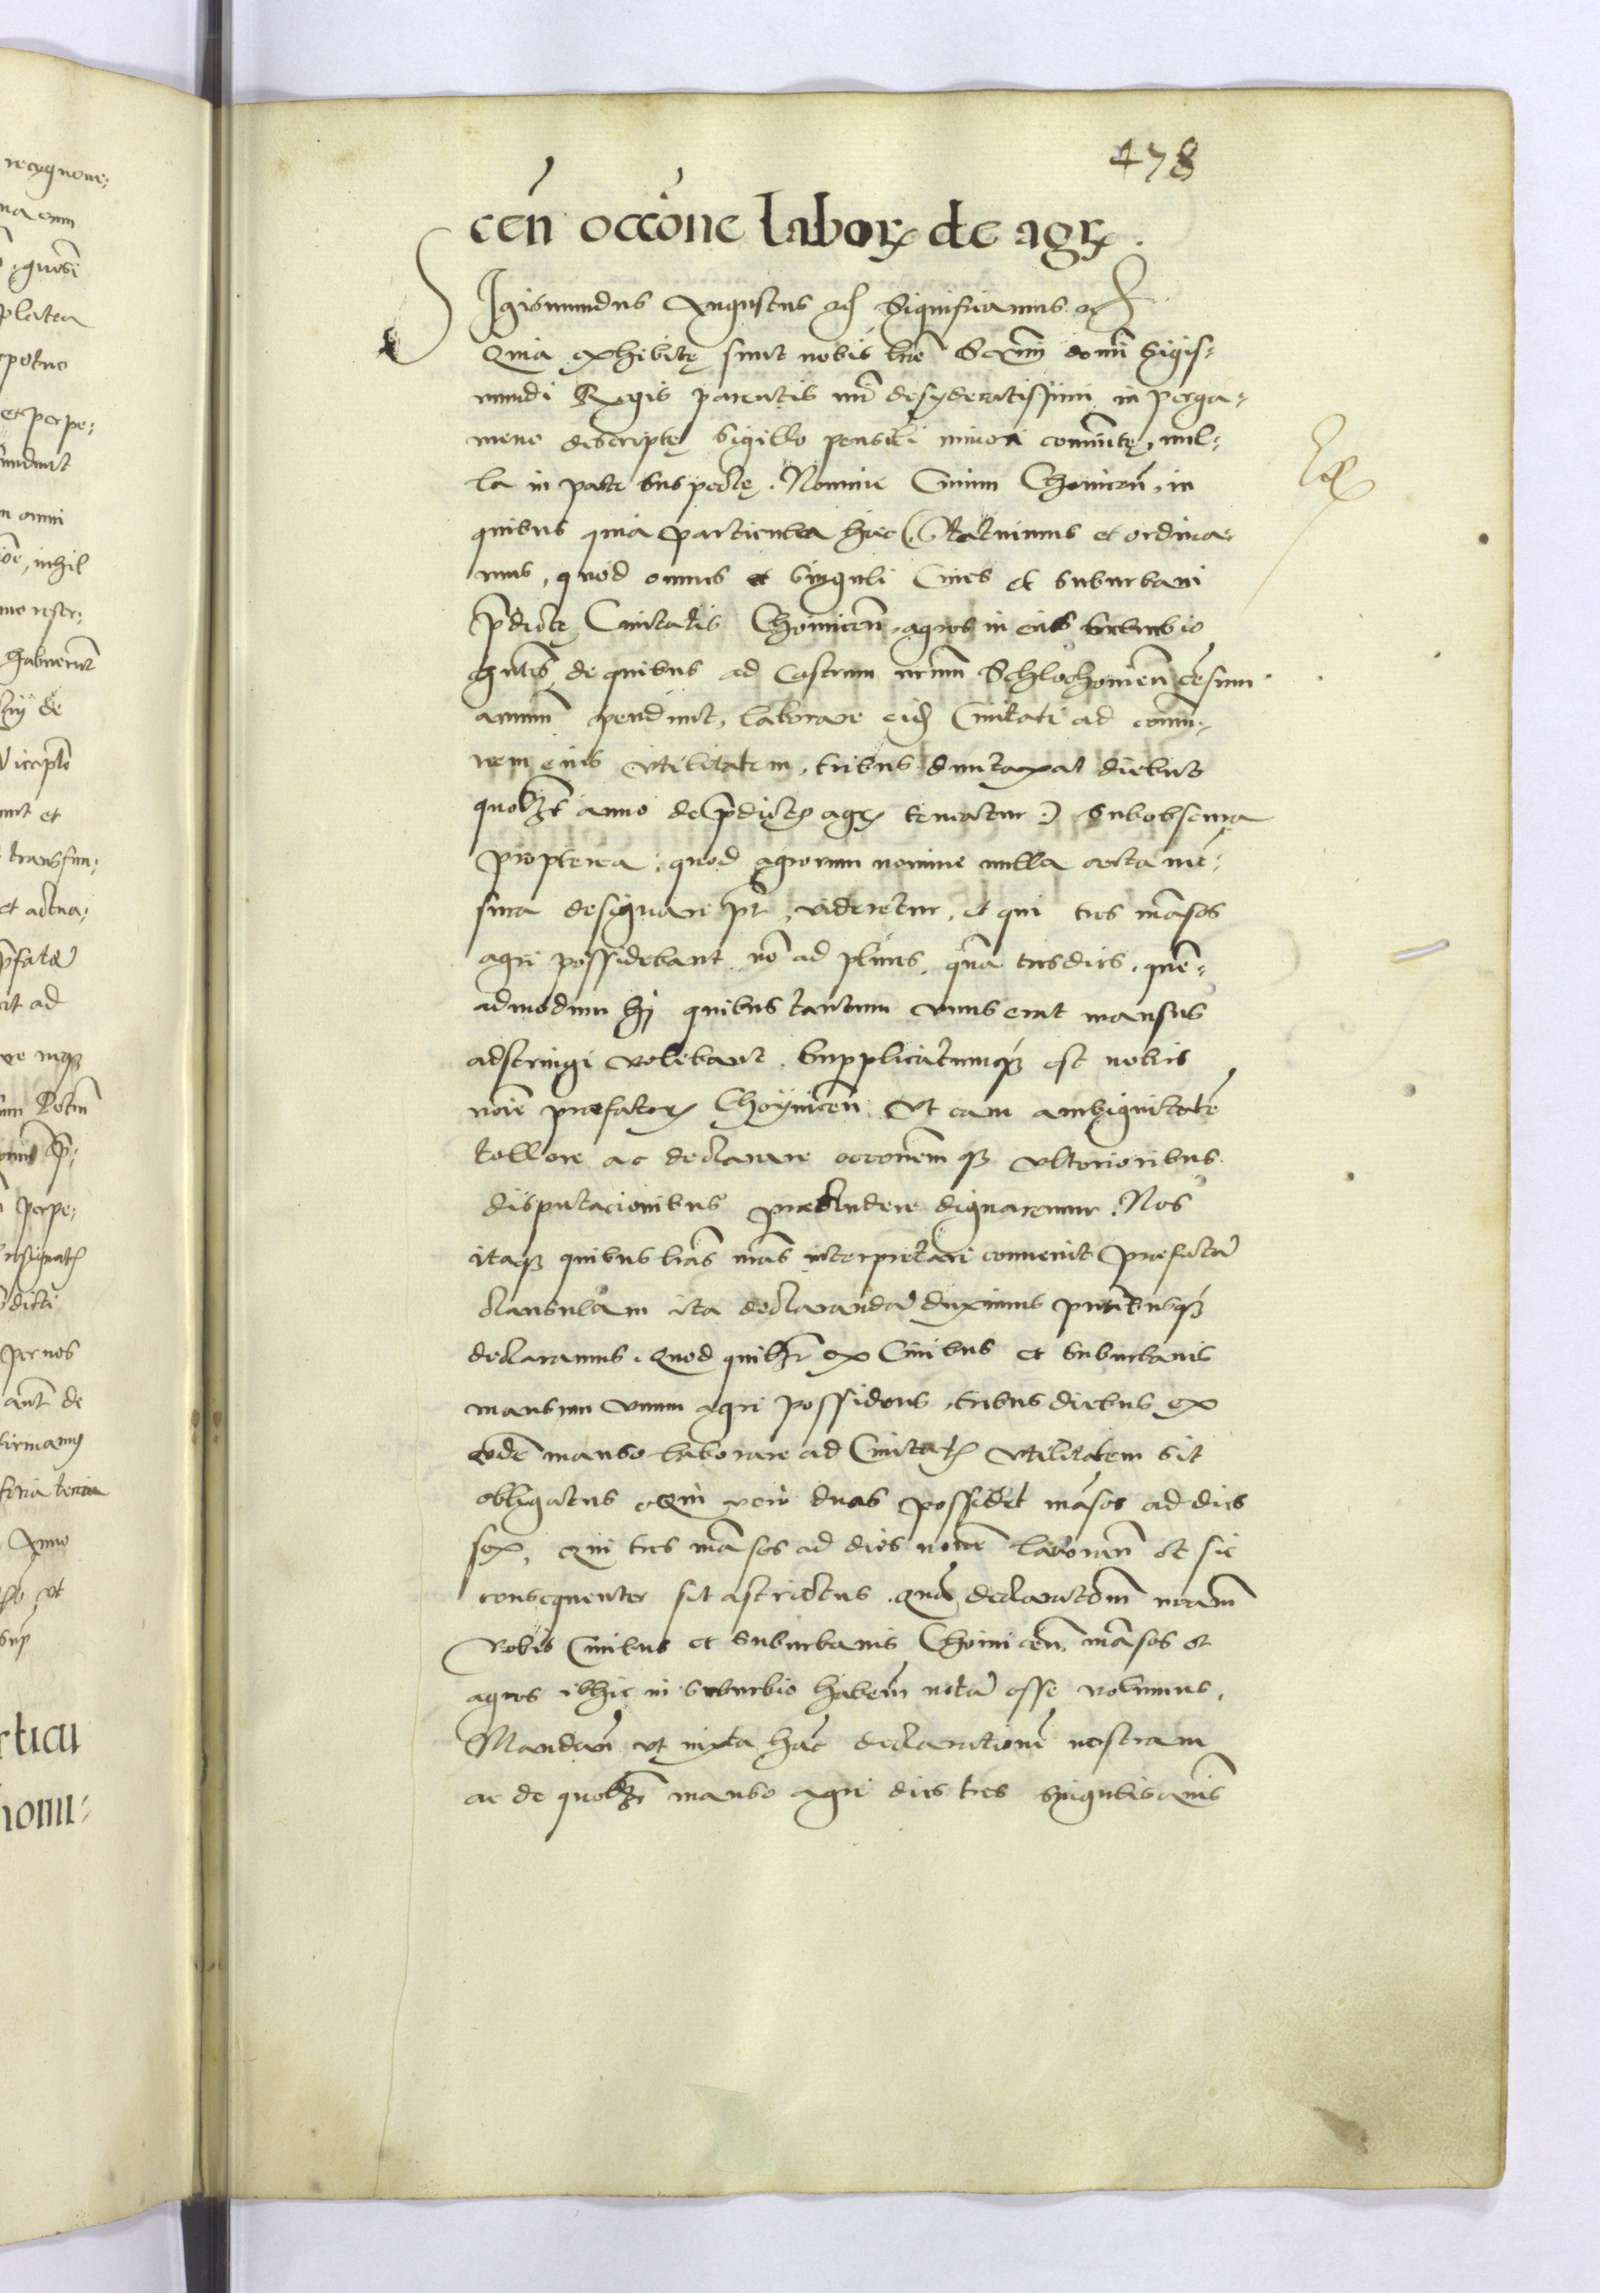 478
ceñ occõne laborꝝ de agrꝝ.
Sigismundus Augustus etc Significamus etc
Quia exhibitę sunt nobis lr̃e Serm̃i domĩ Sigis-
mundi Regis parentis nr̃i desyderatissimi in perga-
meno descriptę sigillo pensili minori com̃unitę, nul-
la in parte suspectę. Nomine Civium Choiniceñ, in
quibus quia particula hæc (Statuimus et ordina-
mus, quod omnes et singuli Cives et suburbani
p̃dictę Civitatis Choiniceñ, agros in eius suburbio
hñtes, de quibus ad Castrum nr̃um Schlochovieñ cẽsum
annuũ pendunt, laborare eidẽ Civitati ad com̃u-
nem eius utilitatem, tribus duntaxat diebus
quolibet anno de p̃dictis agrꝝ teneantur) Subobscura
propterea, quod agrorum nomine nulla certa mẽ-
sura designari p̃t, videretur, et qui tres mãsos
agri possidebant, nõ ad plures, quã tres dies, quẽ-
admodum hij quibus tantum unus erat mansus
adstringi volebant. Supplicatumqꝫ est nobis
noĩe præfatorꝝ Choyniceñ, Ut eam ambiguitatẽ
tollere ac declarare occonemqꝫ ulterioribus
disputacionibus præcludere dignaremur. Nos
itaqꝫ quibus lr̃as nr̃as interpretari convenit præfatã
clausulam ita declarandã duximus pntibusqꝫ
declaramus. Quod quilibet ex Civibus et suburbanis
mansum unum agri possidens, tribus diebus ex
eodẽ manso laborare ad Civitatis utilitatem sit
obligatus, qui vero duos possidet mãsos ad dies
sex, Qui tres mãsos ad dies novẽ laborañ et sic
consequenter sit astrictus. Quã declaratõem nr̃am
Vobis Civibus et suburbanis Choiniceñ mãsos et
agros istic in suburbio habeñ notã esse volumus,
Mandañ ut iuxta hãc declarationẽ nostram
ac de quolibet manso agri dies tres singulis annis